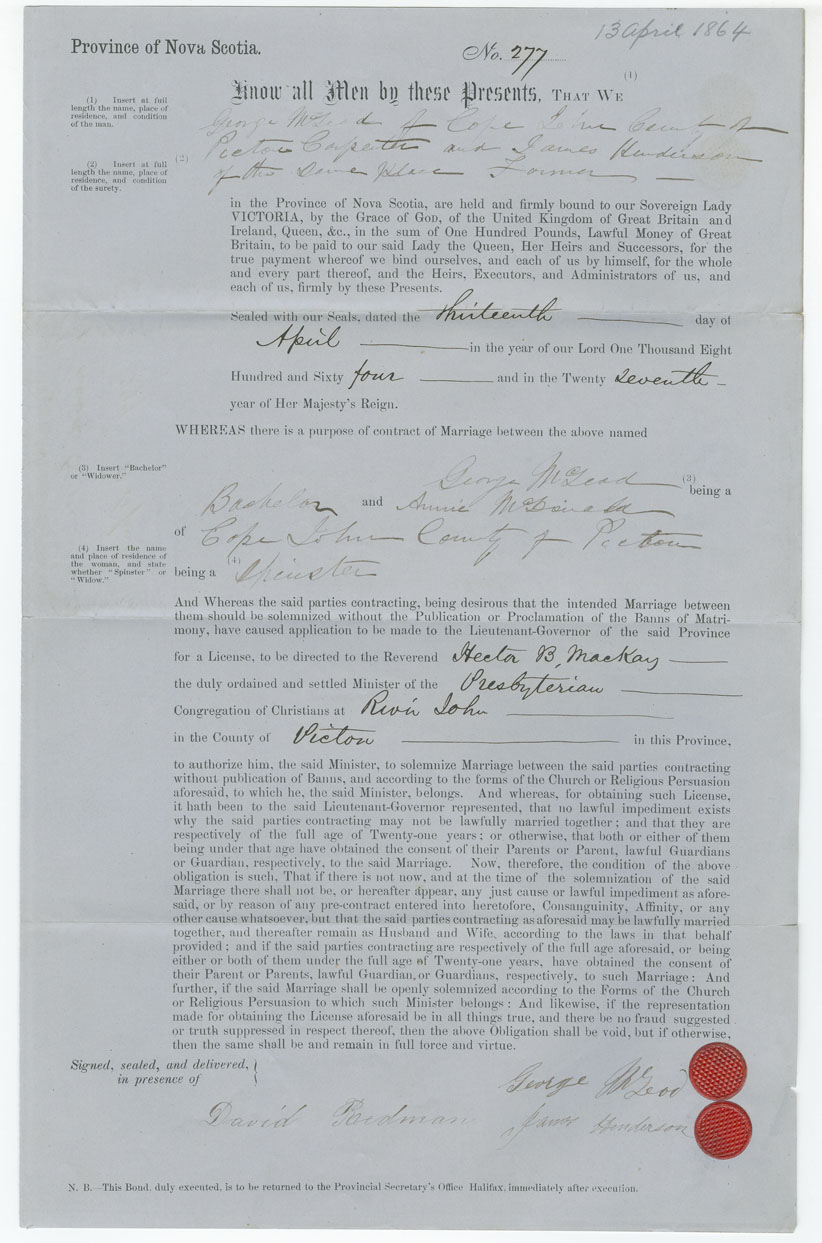 13 April 1864
Province of Nova Scotia.
No. 277
(1)
Know all Men by these Presents, THAT WE
(1) Insert at full
length the name, place of
residence, and condition
of the man.
George McLeod of Cape John County of
(2)
Pictou Carpenter and James Henderson
(2) Insert at full
length the name, place of
residence, and condition
of the surety.
of the Same place Farmer
in the Province of Nova Scotia, are held and firmly bound to our Sovereign Lady
VICTORIA, by the Grace of GOD, of the United Kingdom of Great Britain and
Ireland, Queen, &c., in the sum of One Hundred Pounds, Lawful Money of Great
Britain, to be paid to our said Lady the Queen, Her Heirs and Successors, for the
true payment whereof we bind ourselves, and each of us by himself, for the whole
and every part thereof, and the Heirs, Executors, and Administrators of us, and
each of us, firmly by these Presents.
Sealed with our Seals, dated the Thirteenth day of
April in the year of our Lord One Thousand Eight
Hundred and Sixty four and in the Twenty Seventh
year of Her Majesty's Reign.
WHEREAS there is a purpose of contract of Marriage between the above named
(3) Insert "Bachelor"
or "Widower."
George McLeod (3) being a
Bachelor and Annie McDonald
of Cape John County of Pictou
(4) Insert the name
and place of residence of
the woman, and state
whether "Spinster" or
"Widow."
being a (4) Spinster
And Whereas the said parties contracting, being desirous that the intended Marriage between
them should be solemnized without the Publication or Proclamation of the Banns of Matri-
mony, have caused application to be made to the Lieutenant-Governor of the said Province
for a License, to be directed to the Reverend Hector B, MacKay
the duly ordained and settled Minister of the Presbyterian
Congregation of Christians at River John
in the County of Pictou in this Province,
to authorize him, the said Minister, to solemnize Marriage between the said parties contracting
without publication of Banns, and according to the forms of the Church or Religious Persuasion
aforesaid, to which he, the said Minister, belongs. And whereas, for obtaining such License,
it hath been to the said Lieutenant-Governor represented, that no lawful impediment exists
why the said parties contracting may not be lawfully married together; and that they are
respectively of the full age of Twenty-one years; or otherwise, that both or either of them
being under that age have obtained the consent of their Parents or Parent, lawful Guardians
or Guardian, respectively, to the said Marriage. Now, therefore, the condition of the above
obligation is such, That if there is not now, and at the time of the solemnization of the said
Marriage there shall not be, or hereafter appear, any just cause or lawful impediment as afore-
said, or by reason of any pre-contract entered into heretofore, Consanguinity, Affinity, or any
other cause whatsoever, but that the said parties contracting as aforesaid may be lawfully married
together, and thereafter remain as Husband and Wife, according to the laws in that behalf
provided; and if the said parties contracting are respectively of the full age aforesaid, or being
either or both of them under the full age of Twenty-one years, have obtained the consent of
their Parent or Parents, lawful Guardian, or Guardians, respectively, to such Marriage: And
further, if the said Marriage shall be openly solemnized according to the Forms of the Church
or Religious Persuasion to which such Minister belongs: And likewise, if the representation
made for obtaining the License aforesaid be in all things true, and there be no fraud suggested
or truth suppressed in respect thereof, then the above Obligation shall be void, but if otherwise,
then the same shall be and remain in full force and virtue.
Signed, sealed, and delivered,
in presence of
George McLeod
David Redman James Henderson
N. B.—This Bond, duly executed, is to be returned to the Provincial Secretary's Office Halifax, immediately after execution.